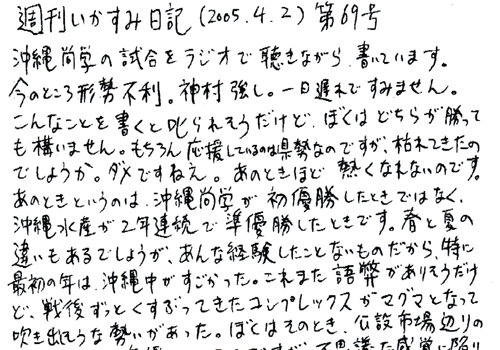 週刊いかすみ日記(2005.4.2)第69号
沖縄尚学の試合をラジオで聴きながら、書いています。
今のところ形勢不利。神村強し。一日遅れですみません。
こんなことを書くと叱られそうだけど、ぼくはどちらが勝って
も構いません。もちろん応援しているのは県勢なのですが、枯れてきたの
でしょうか。ダメですねえ。あのときほど熱くなれないのです。
あのときというのは、沖縄尚学が初優勝したときではなく、
沖縄水産が2年連続で準優勝したときです。春と夏の
違いもあるでしょうが、あんな経験したことないものだから、特に
最初の年は、沖縄中がすごかった。これまた語弊がありそうだけ
ど、戦後ずっとくすぶってきたコンプレックスがマグマとなって
吹き出そうな勢いがあった。ぼくはそのとき、公設市場辺りの